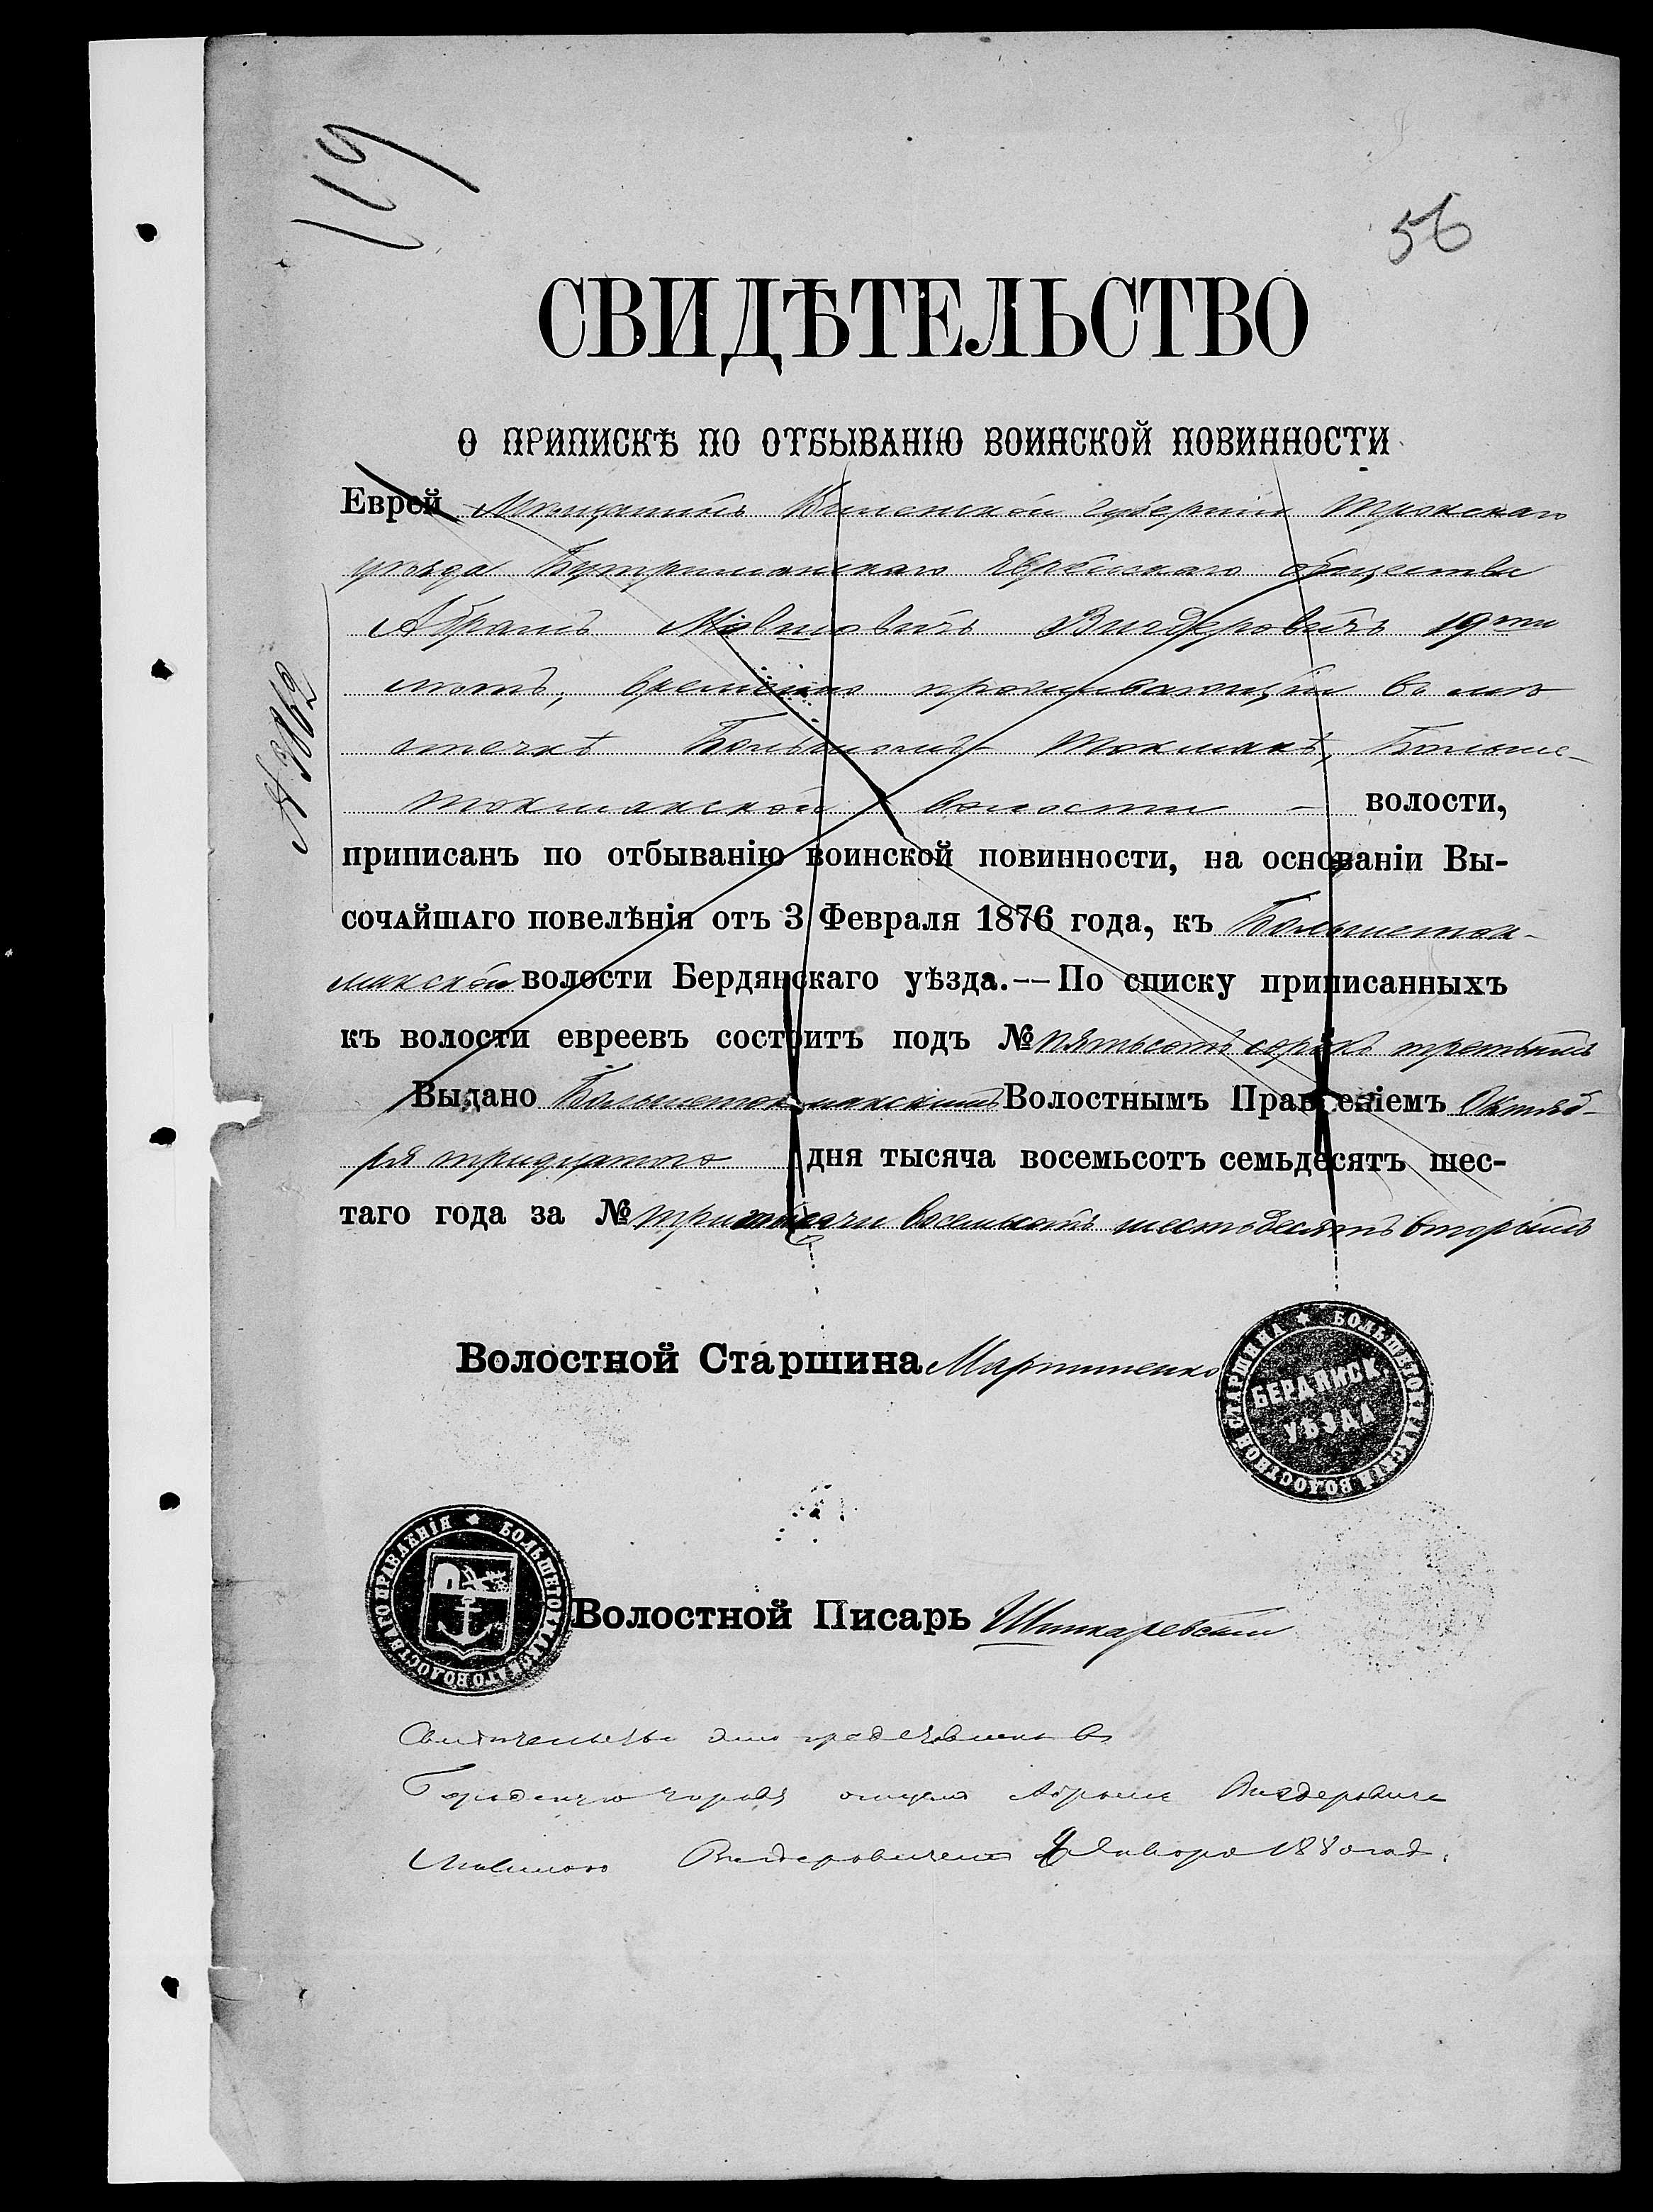 119
56
СВИДѢТЕЛЬСТВО
О ПРИПИСКѢ ПО ОТБЫВАНІЮ ВОИНСКОЙ ПОВИННОСТИ
Еврей Мѣщанинъ Виленской губерніи Трокскаго
уѣзда Бутриманскаго Еврейскаго общества
Абрамъ Мовшовичъ Видеровичъ 19ти
лѣтъ, временно проживающій въ мѣ
стечкѣ Большомъ Токмакѣ, Больше-
токмакской волости – волости,
приписанъ по отбыванію воинской повинности, на основаніи Вы-
сочайшаго повелѣнія отъ 3 Февраля 1876 года, къ Большеток-
макской волости Бердянскаго уѣзда.—По списку приписанныхъ
къ волости евреевъ состоитъ подъ № пятьсотъ сорокъ третьимъ
Выдано Большетокмакскимъ Волостнымъ Правленіемъ Октяб-
ря тридцатого дня тысяча восемьсотъ семьдесятъ шес-
таго года за № три тысячи восемьсотъ шестьдесятъ вторымъ
№ 3862
Волостной Старшина Мартыненко
БОЛЬШЕТОКМАКСКІЙ ВОЛОСТНОЙ СТАРШИНА
БЕРДЯНСК.
УѢЗДА
БОЛЬШЕТОКМАКСКАГО ВОЛОСТНАГО ПРАВЛЕНІЯ
Волостной Писарь Шинкаревскій
Свидѣтельство это представлено въ
Городскую Управу отцемъ Абрама Видеровича
Мовшою Видеровичемъ Января 1880 год.